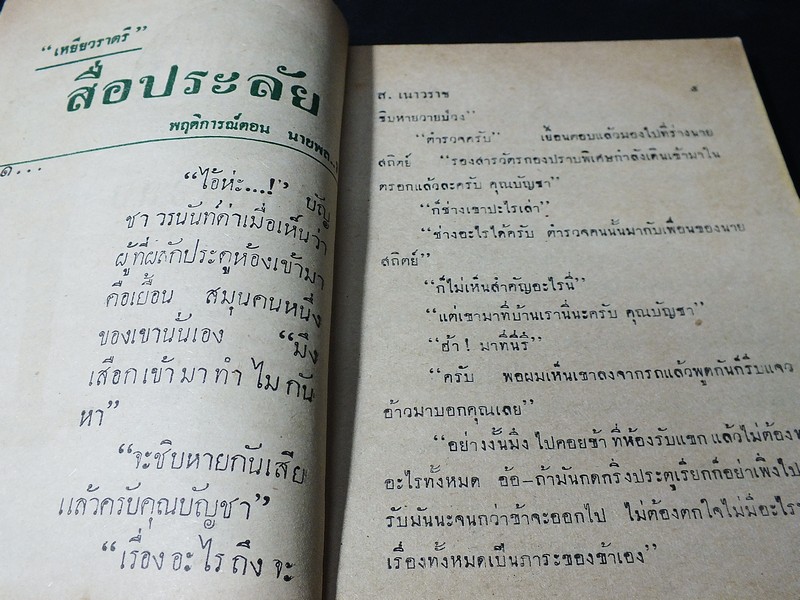 “เหยี่ยวราตรี”
สื่อประลัย
พฤติการณ์ตอน นายพล..
ด...
“ไอ้ห่ะ...!” บัญ
ชา วรนันท์ด่าเมื่อเห็นว่า
ผู้ที่ผลักประตูห้องเข้ามา
คือเยื้อน สมุนคนหนึ่ง
ของเขานั่นเอง “มึง
เสือกเข้ามาทำไมกัน
หา”
“จะชิบหายกันเสีย
แล้วครับคุณบัญชา”
“เรื่องอะไรถึงจะ
ส. เนาวราช
๕
ชิบหายวายป่วง”
“ตำรวจครับ” เยื้อนตอบแล้วมองไปที่ร่างนาย
สถิตย์ “รองสารวัตรกองปราบพิเศษกำลังเดินเข้ามาใน
ตรอกแล้วละครับ คุณบัญชา”
“ก็ช่างเขาปะไรเล่า”
“ช่างอะไรได้ครับ ตำรวจคนนั้นมากับเพื่อนของนาย
สถิตย์”
“ก็ไม่เห็นสำคัญอะไรนี่”
“แต่เขามาที่บ้านเรานี่นะครับ คุณบัญชา”
“ฮ้า ! มาที่นี่รึ”
“ครับ พอผมเห็นเขาลงจากรถแล้วพูดกันก็รีบแจว
อ้าวมาบอกคุณเลย”
“อย่างงั้นมึงไปคอยข้าที่ห้องรับแขก แล้วไม่ต้องพ
อะไรทั้งหมด อ้อ–ถ้ามันกดกริ่งประตูเรียกก็อย่าเพิ่งไป
รับมันนะจนกว่าข้าจะออกไป ไม่ต้องตกใจไม่มีอะไร
เรื่องทั้งหมดเป็นภาระของข้าเอง”